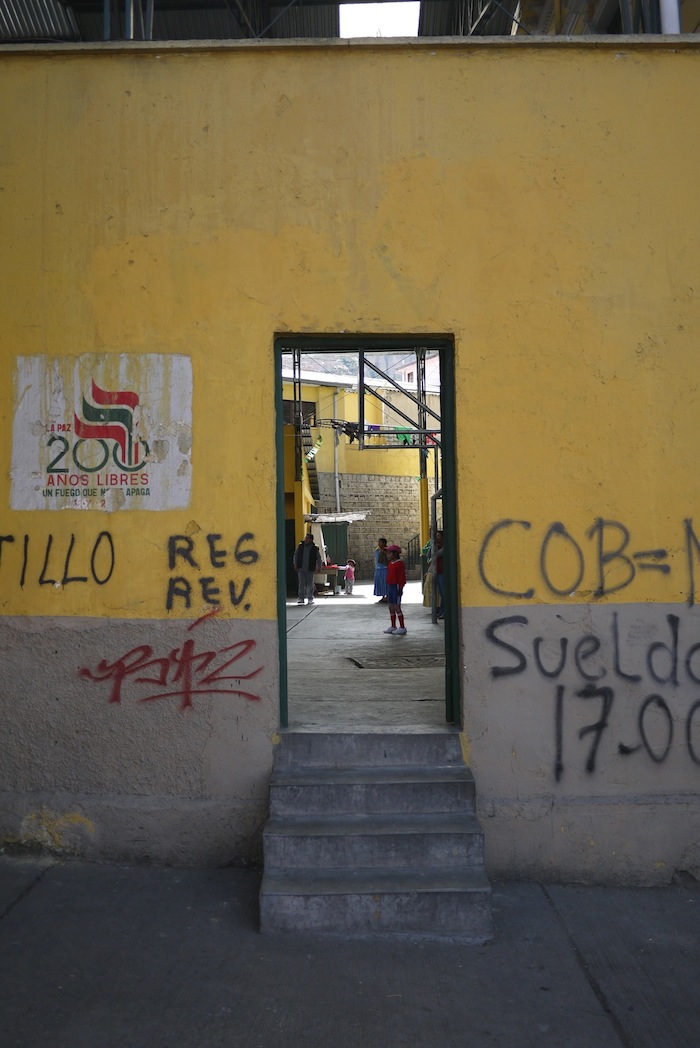 LA PAZ
200
AÑOS LIBRES
UN FUEGO QUE NO SE APAGA
TILLO
REG
REV.
COB=
Sueldo
17.00